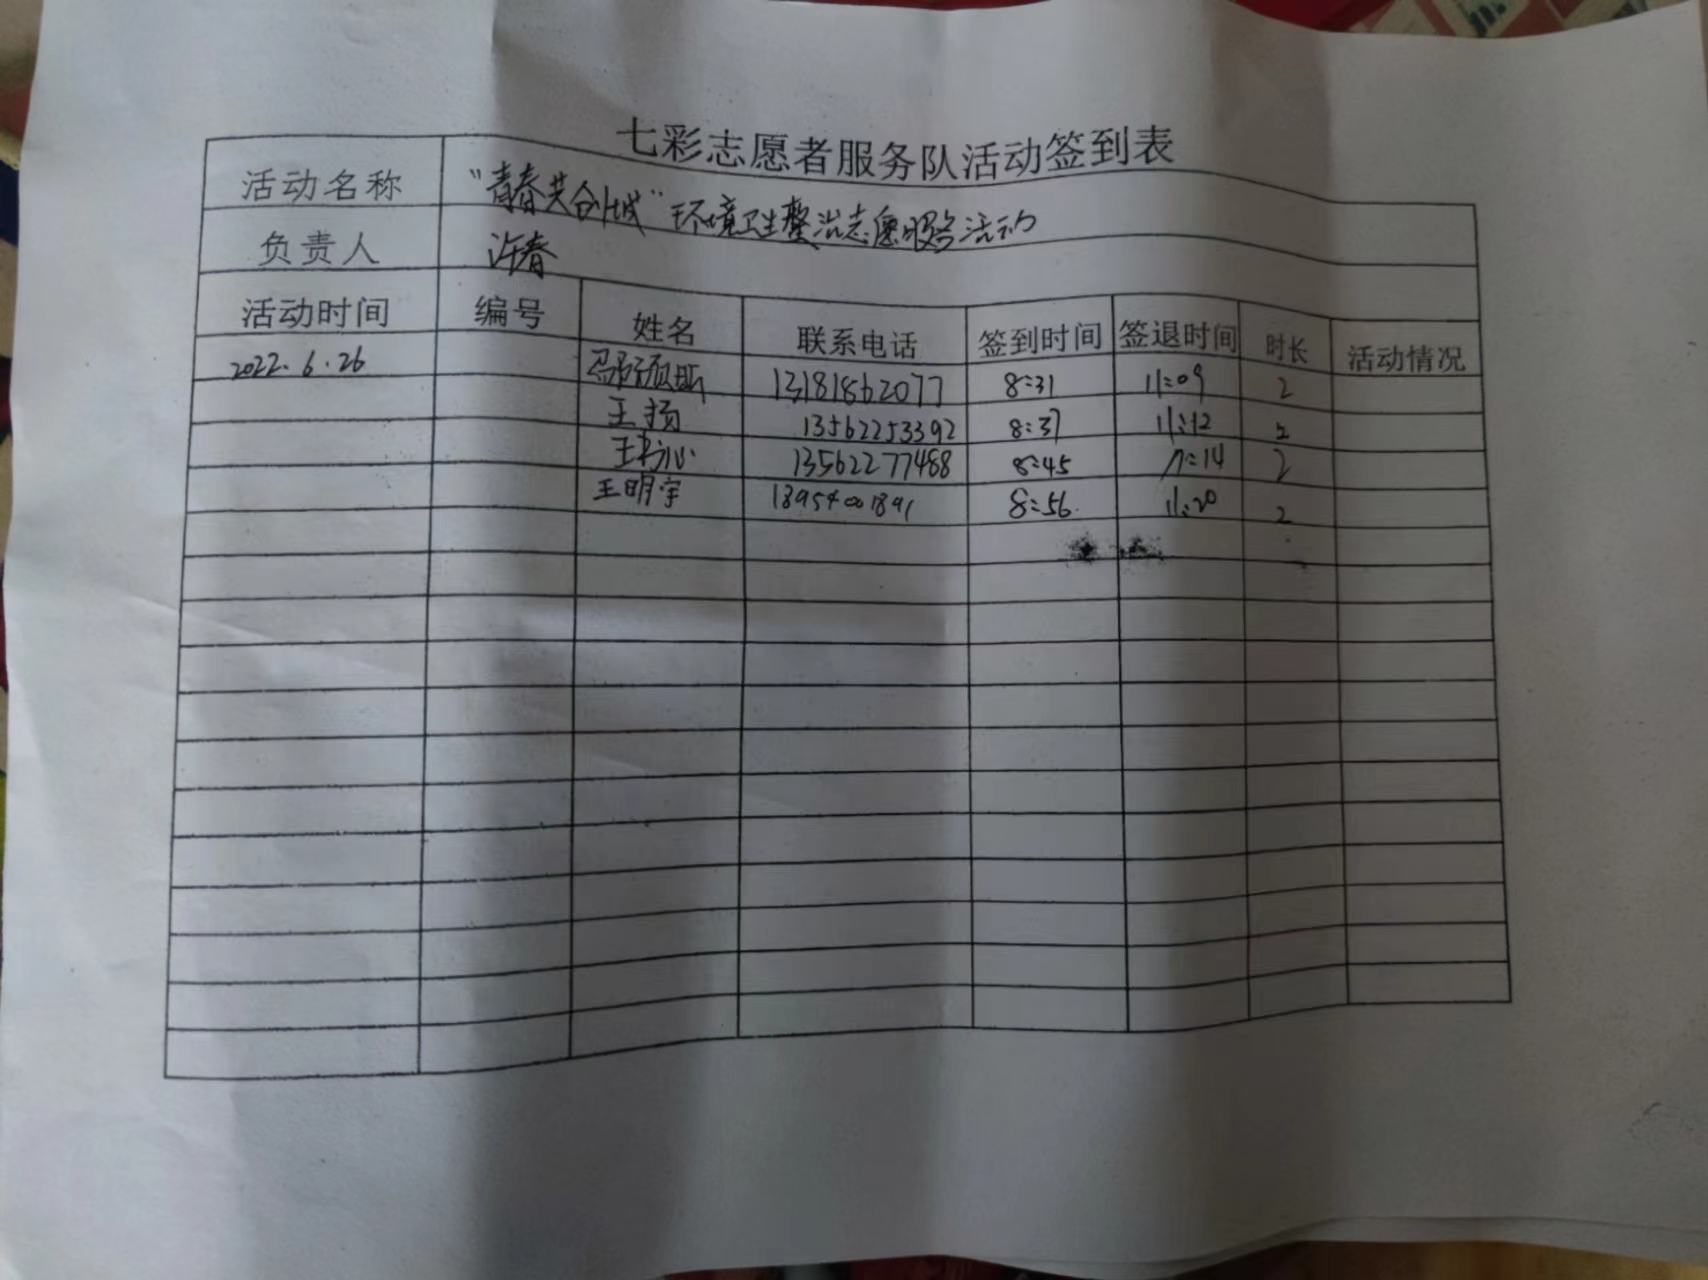 七彩志愿者服务队活动签到表
活动名称 "青春共创城"环境卫生整治志愿服务活动
负责人 许春
活动时间 编号 姓名 联系电话 签到时间 签退时间 时长 活动情况
2022.6.26 13181862077 8:31 11:09 2
王扬 13562253392 8:37 11:12 2
13562277488 8:45 11:14 2
王明宇 13954001891 8:56 11:20 2